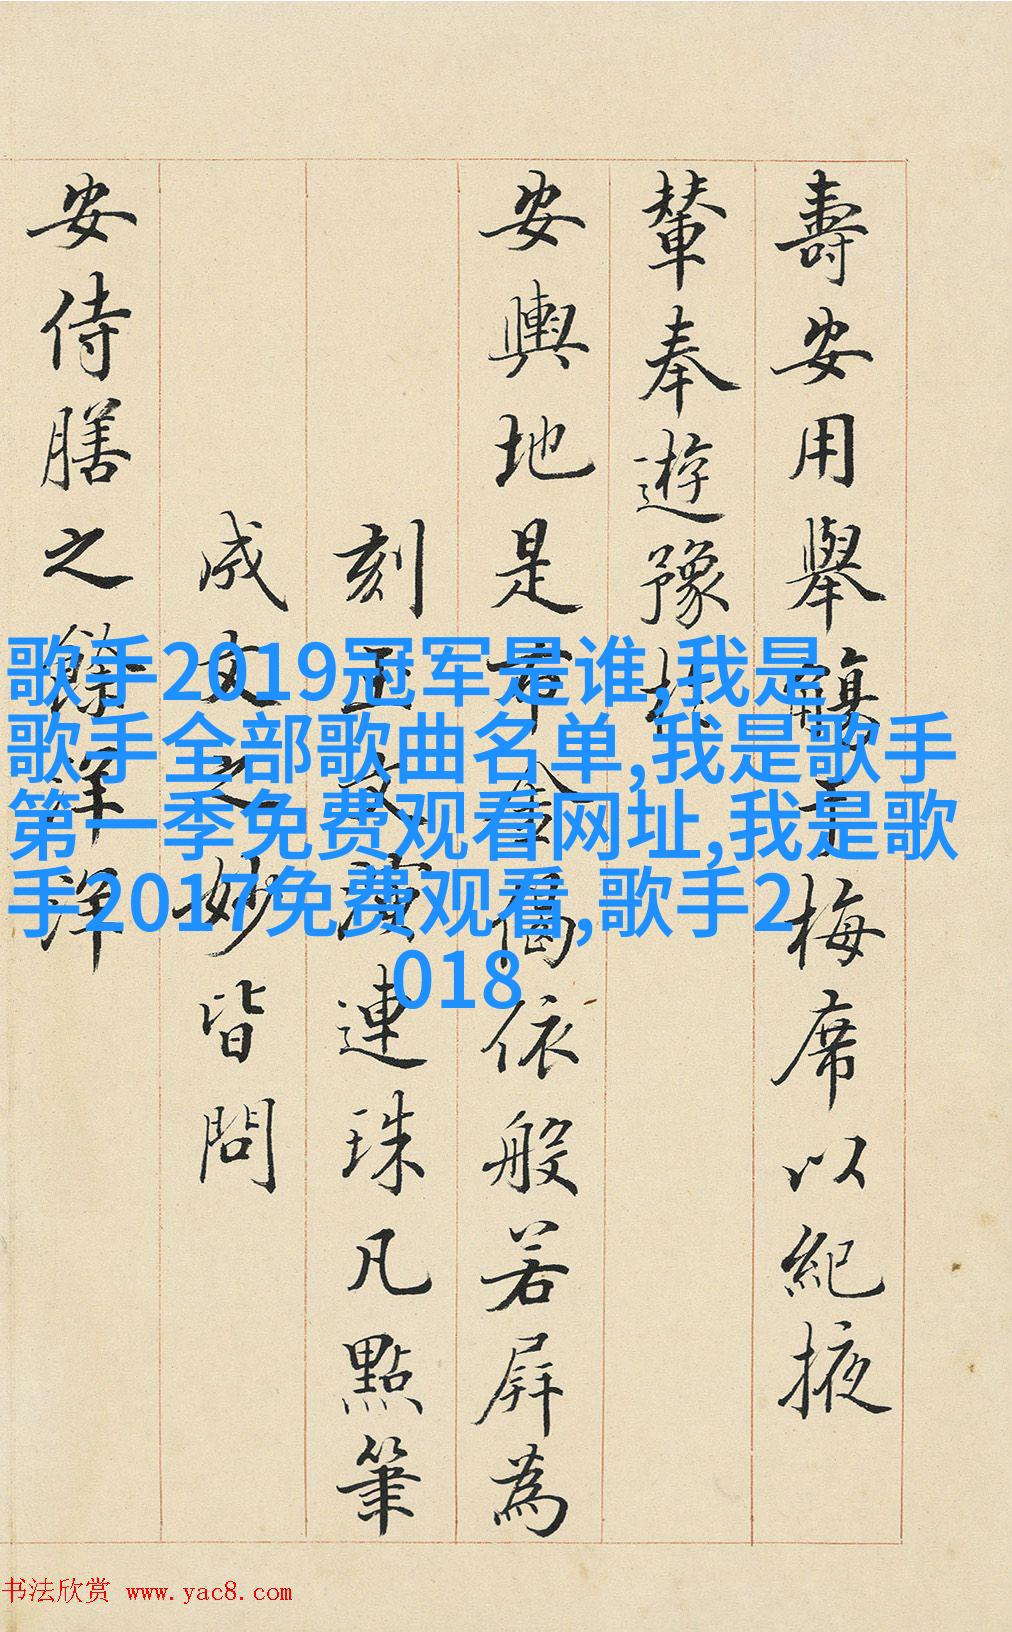 壽安用舉
梅席以紀掖
輦奉遊豫
安輿地是
依般若屏為
刻
連珠凡點筆
成文之妙皆問
安侍膳之餘
歌手2019冠军是谁,我是
歌手全部歌曲名单,我是歌手
第一季免费观看网址,我是歌
手2017免费观看,歌手2
018
书法欣赏 www.yac8.com